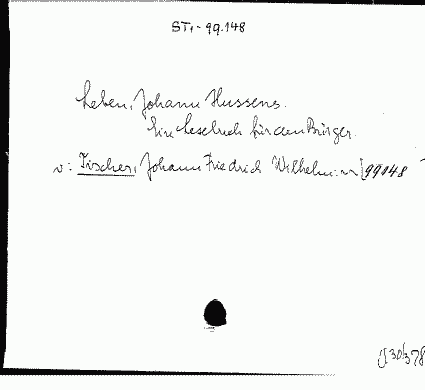 ST, - 99.148
Leben, Johann Hussens.
Ein Lesebuch für den Bürger.
v: Fischer, Johann Friedrich Wilhelm: [99148